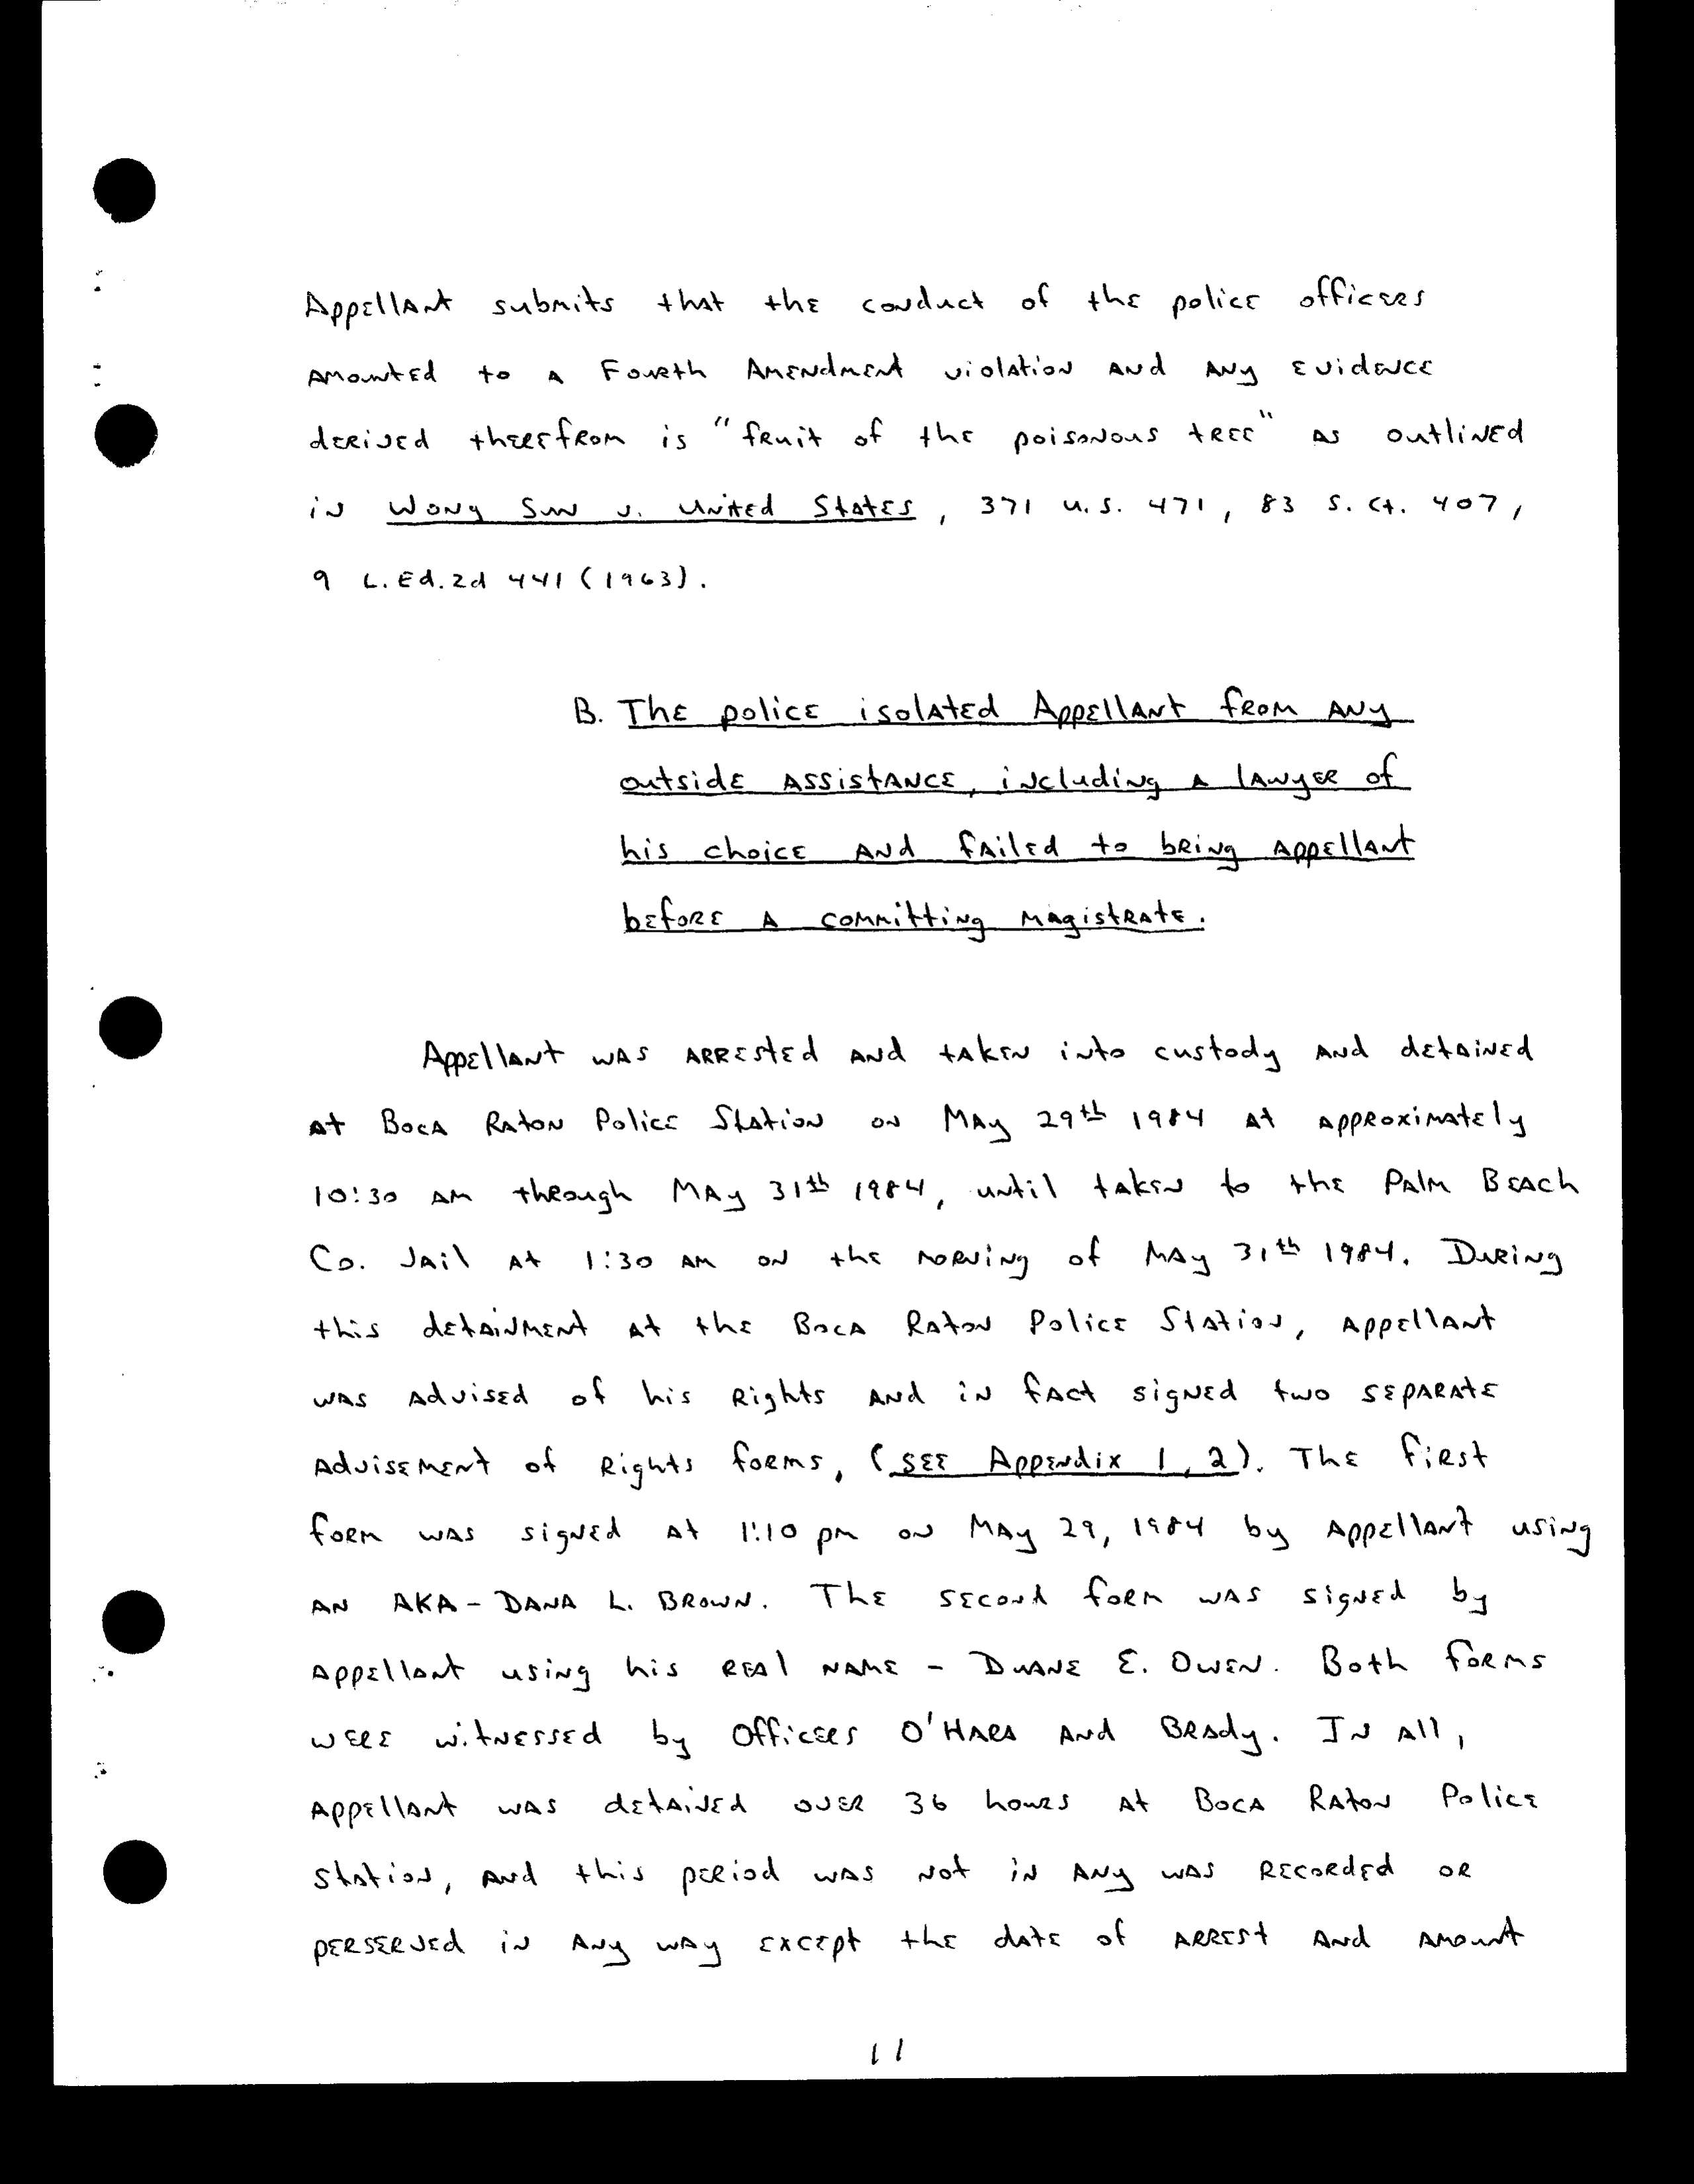 Appellant submits that the conduct of the police officers
amounted to a Fourth Amendment violation and any evidence
derived therefrom is "fruit of the poisonous tree" as outlined
in Wong Sun v. United States, 371 U.S. 471, 83 S. Ct. 407,
9 L.Ed.2d 441 (1963).
B. The police isolated Appellant from any
outside assistance, including a lawyer of
his choice and failed to bring appellant
before a committing magistrate.
Appellant was arrested and taken into custody and detained
at Boca Raton Police Station on May 29th 1984 at approximately
10:30 am through May 31th 1984, until taken to the Palm Beach
Co. Jail at 1:30 am on the morning of May 31th 1984. During
this detainment at the Boca Raton Police Station, appellant
was advised of his rights and in fact signed two separate
advisement of rights forms, (see Appendix 1, 2). The first
form was signed at 1:10 pm on May 29, 1984 by appellant using
an AKA - Dana L. Brown. The second form was signed by
appellant using his real name - Duane E. Owen. Both forms
were witnessed by Officers O'Hara and Brady. In all,
appellant was detained over 36 hours at Boca Raton Police
Station, and this period was not in any was recorded or
perserved in any way except the date of arrest and amount
11